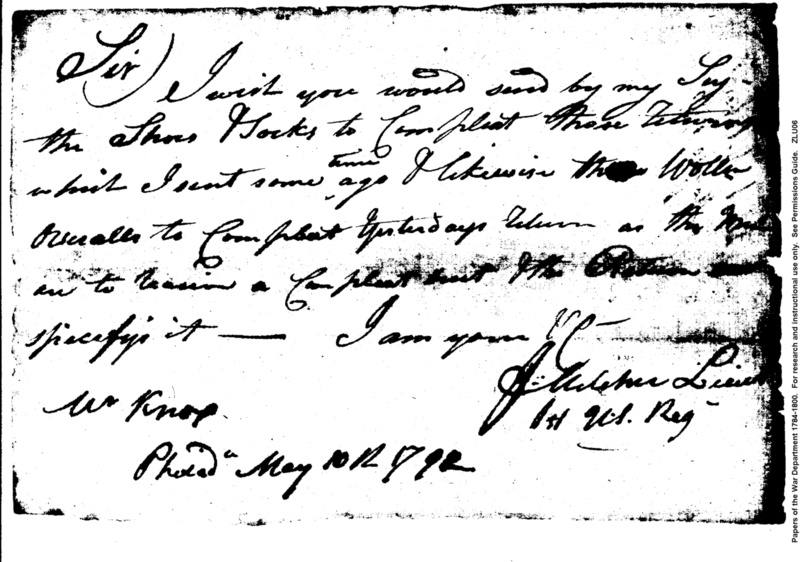 Sir) I wish you would send by my Serj
the Shoes & Socks to Compleat those Returns
which I sent some time ago & likewise the Wollen
Overalls to Compleat Yesterdays Return as the Men
are to receive a Compleat suit & the Return
specifys it — I am yours &c
J: Melcher Lieut
1st US. Reg
Mr Knox
Philada May 10th 1792
Papers of the War Department 1784-1800. For research and instructional use only. See Permissions Guide. ZLU06